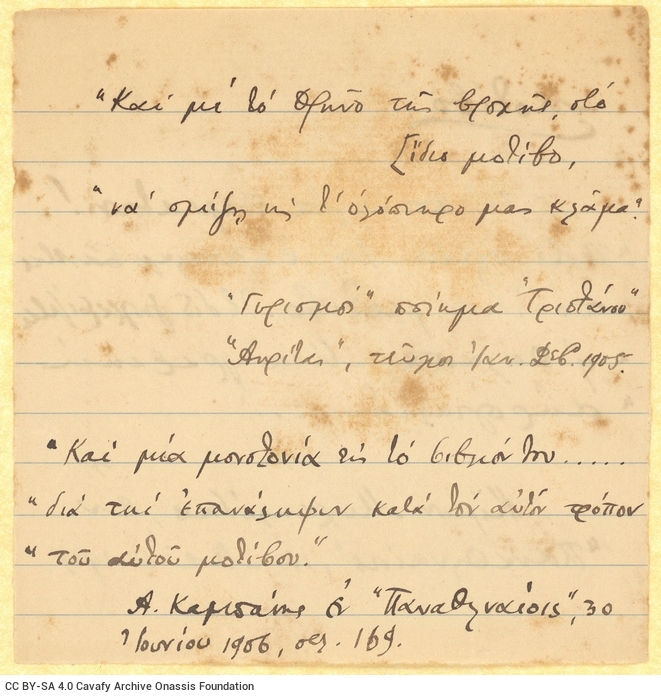 "Καὶ μὲ τὸ θρῆνο τῆς βροχῆς, στὸ
[ἴδιο μοτίβο,
"νὰ σμίξῃ τὸ ὁλόπικρο μας κλᾶμα".
"Γυρισμοὶ" ποίημα "Τριστάνου"
"Ἀκρίτας", τεῦχος Ἰαν. Φεβ. 1905.
"Καὶ μία μονοτονία εἰς τὸ βιβλίον του ......
"διὰ τὴν ἐπανάληψιν κατὰ τὸν αὐτὸν τρόπον
"τοῦ αὐτοῦ μοτίβου."
Α. Καμπάνης ἐν "Παναθηναίοις", 30
Ἰουνίου 1906, σελ. 169.
CC BY-SA 4.0 Cavafy Archive Onassis Foundation